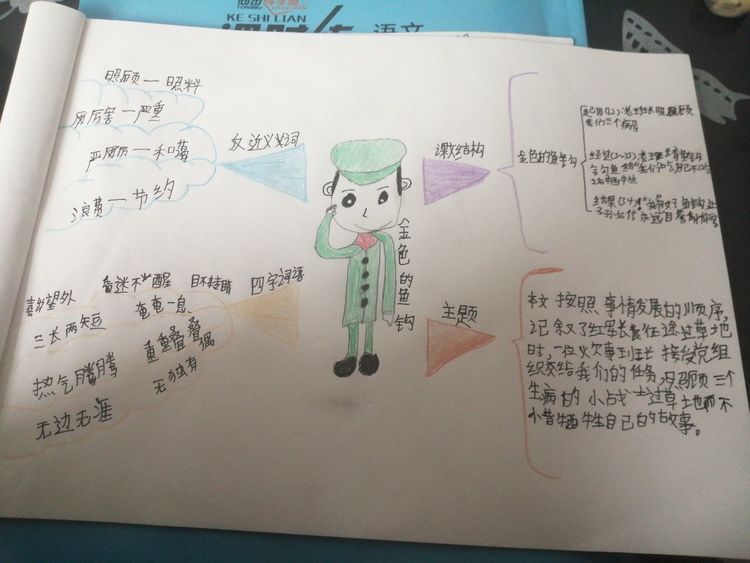 同步导学案
TONGBU
KE SHI LIAN
课时练
语文
照顾—照料
厉害—严重
严厉—和蔼
浪费—节约
反近义词
四字词语
喜出望外
昏迷不醒
目不转睛
三长两短
奄奄一息
热气腾腾
重重叠叠
无边无涯
无独有偶
金色的鱼钩
课文结构
金色的鱼钩
主题
本文按照事情发展的顺序,
记叙了红军长征途中草地
时,一位炊事班班长接受党组
织交给我们的任务,照顾三个
生病的小战士过草地而不
惜牺牲自己的故事。